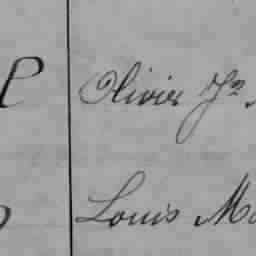 P Olivier Jn
Louis